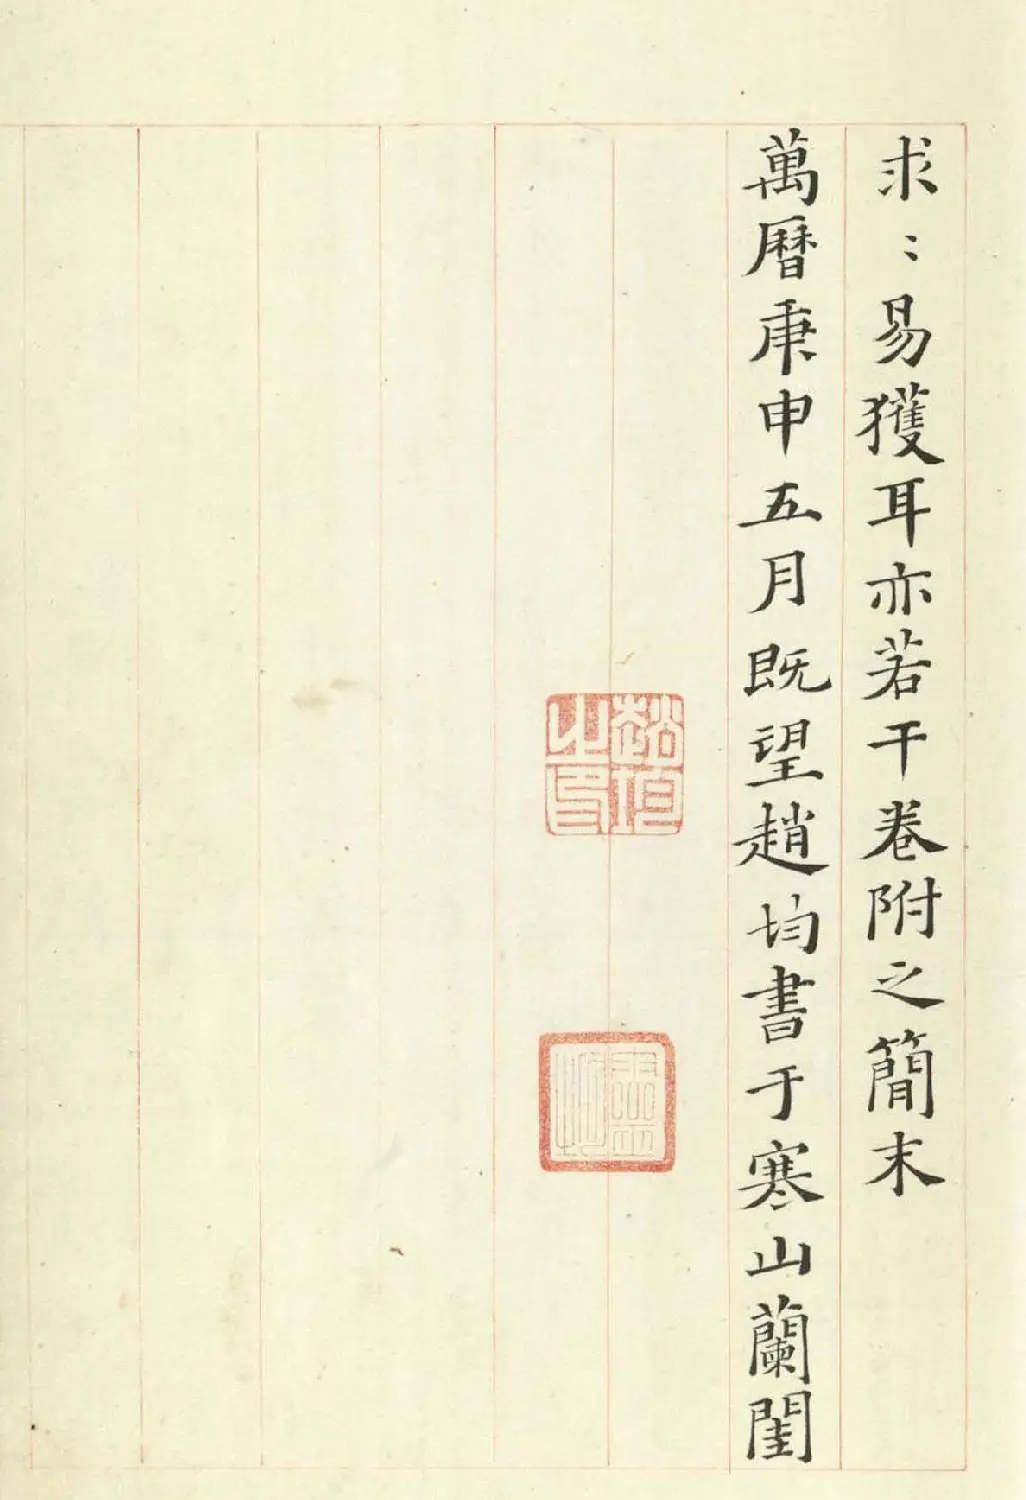 求〻易獲耳亦若干卷附之簡末
萬曆庚申五月既望趙均書于寒山蘭閨
趙均之印